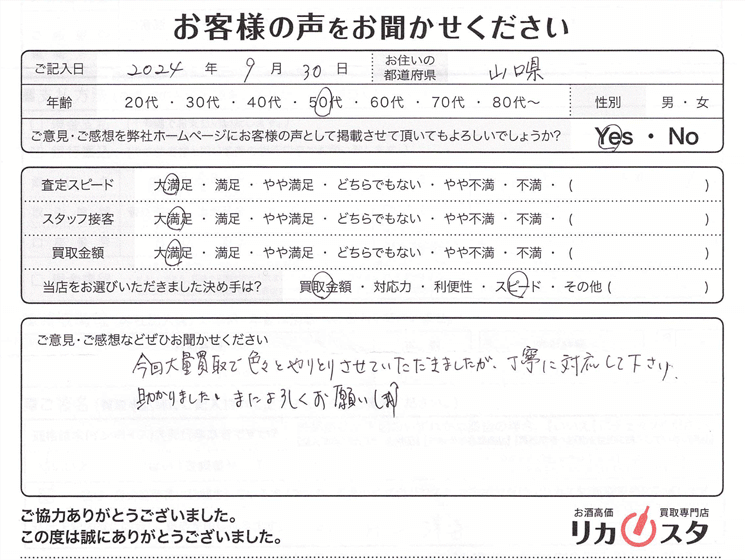 お客様の声をお聞かせください
ご記入日 2024 年 9 月 30 日 お住いの都道府県 山口県
年齢 20代 ・ 30代 ・ 40代 ・ 50代 ・ 60代 ・ 70代 ・ 80代～ 性別 男 ・ 女
ご意見・ご感想を弊社ホームページにお客様の声として掲載させて頂いてもよろしいでしょうか? Yes ・ No
査定スピード 大満足 ・ 満足 ・ やや満足 ・ どちらでもない ・ やや不満 ・ 不満 ・ ( )
スタッフ接客 大満足 ・ 満足 ・ やや満足 ・ どちらでもない ・ やや不満 ・ 不満 ・ ( )
買取金額 大満足 ・ 満足 ・ やや満足 ・ どちらでもない ・ やや不満 ・ 不満 ・ ( )
当店をお選びいただきました決め手は? 買取金額 ・ 対応力 ・ 利便性 ・ スピード ・ その他 ( )
ご意見・ご感想などぜひお聞かせください
今回大量買取で色々とやりとりさせていただきましたが、丁寧に対応して下さり、
助かりました。またよろしくお願いし
ご協力ありがとうございました。
この度は誠にありがとうございました。
お酒高価 買取専門店
リカスタ